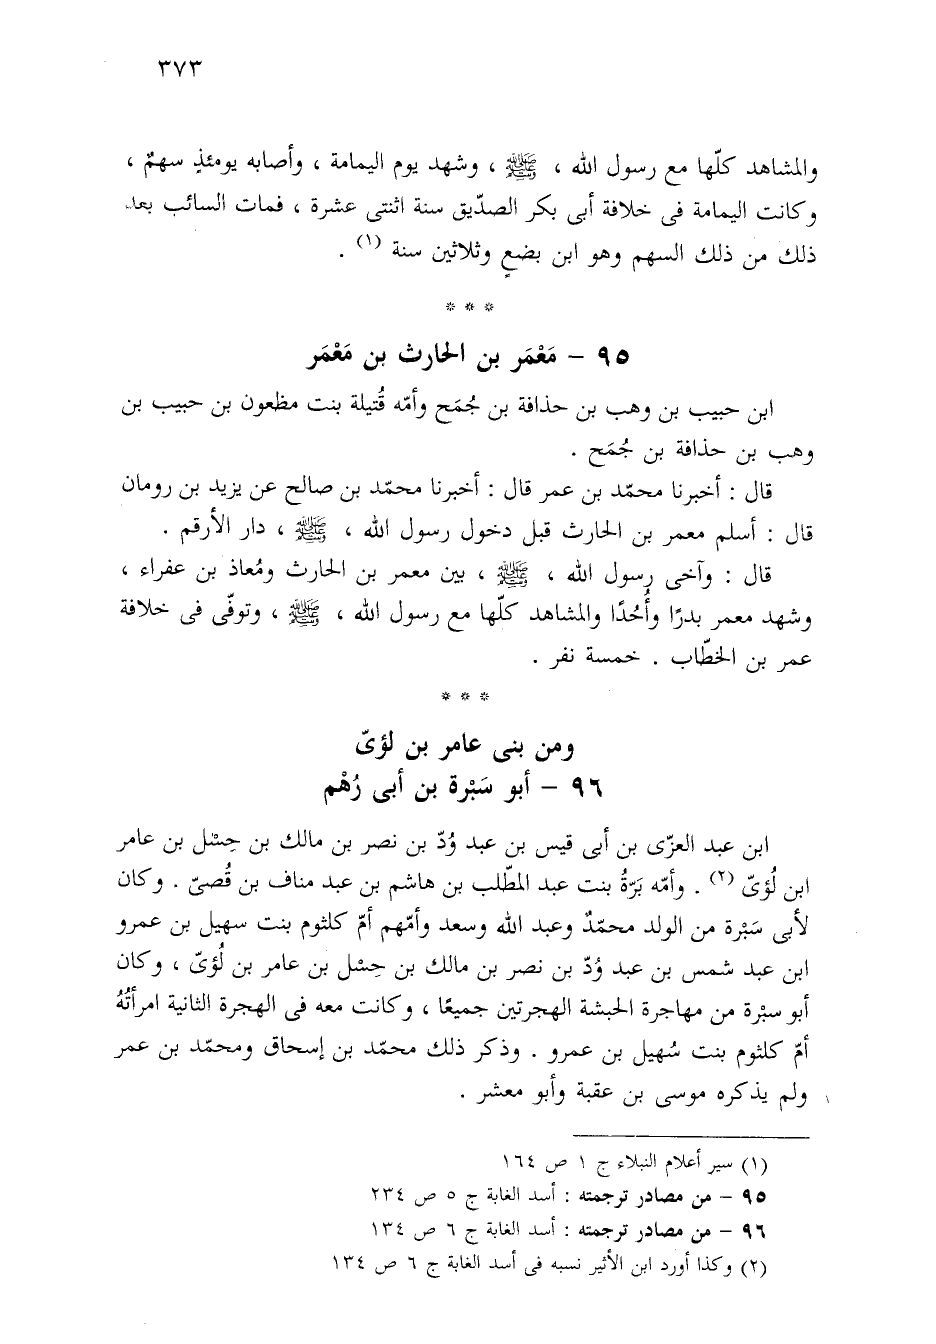 ٣٧٣
والمشاهد كلّها مع رسول الله ، ﷺ ، وشهد يوم اليمامة ، وأصابه يومئذٍ سهمٌ ،
وكانت اليمامة فى خلافة أبى بكر الصدّيق سنة اثنتى عشرة ، فمات السائب بعد
ذلك من ذلك السهم وهو ابن بضعٍ وثلاثين سنة (١) .
* * *
٩٥ – مَعْمَر بن الحارث بن مَعْمَر
ابن حبيب بن وهب بن حذافة بن جُمَح وأمّه قُتيلة بنت مظعون بن حبيب بن
وهب بن حذافة بن جُمَح .
قال : أخبرنا محمّد بن عمر قال : أخبرنا محمّد بن صالح عن يزيد بن رومان
قال : أسلم معمر بن الحارث قبل دخول رسول الله ، ﷺ ، دار الأرقم .
قال : وآخى رسول الله ، ﷺ ، بين معمر بن الحارث ومُعاذ بن عفراء ،
وشهد معمر بدرًا وأُحُدًا والمشاهد كلّها مع رسول الله ، ﷺ ، وتوفّى فى خلافة
عمر بن الخطّاب . خمسة نفر .
* * *
ومن بنى عامر بن لؤىّ
٩٦ – أبو سَبْرة بن أبى رُهْم
ابن عبد العزّى بن أبى قيس بن عبد وُدّ بن نصر بن مالك بن حِسْل بن عامر
ابن لُؤىّ (٢) . وأمّه بَرّةُ بنت عبد المطّلب بن هاشم بن عبد مناف بن قُصىّ . وكان
لأبى سَبْرة من الولد محمّدٌ وعبد الله وسعد وأمّهم أمّ كلثوم بنت سهيل بن عمرو
ابن عبد شمس بن عبد وُدّ بن نصر بن مالك بن حِسْل بن عامر بن لُؤىّ ، وكان
أبو سبْرة من مهاجرة الحبشة الهجرتين جميعًا ، وكانت معه فى الهجرة الثانية امرأتُهُ
أمّ كلثوم بنت سُهيل بن عمرو . وذكر ذلك محمّد بن إسحاق ومحمّد بن عمر
ولم يذكره موسى بن عقبة وأبو معشر .
(١) سير أعلام النبلاء ج ١ ص ١٦٤
٩٥ – من مصادر ترجمته : أسد الغابة ج ٥ ص ٢٣٤
٩٦ – من مصادر ترجمته : أسد الغابة ج ٦ ص ١٣٤
(٢) وكذا أورد ابن الأثير نسبه فى أسد الغابة ج ٦ ص ١٣٤